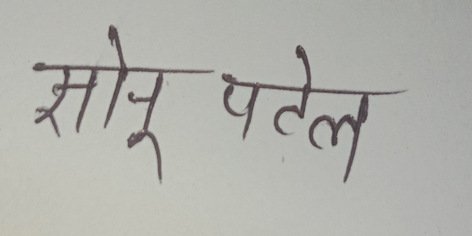 सोनू पटेल